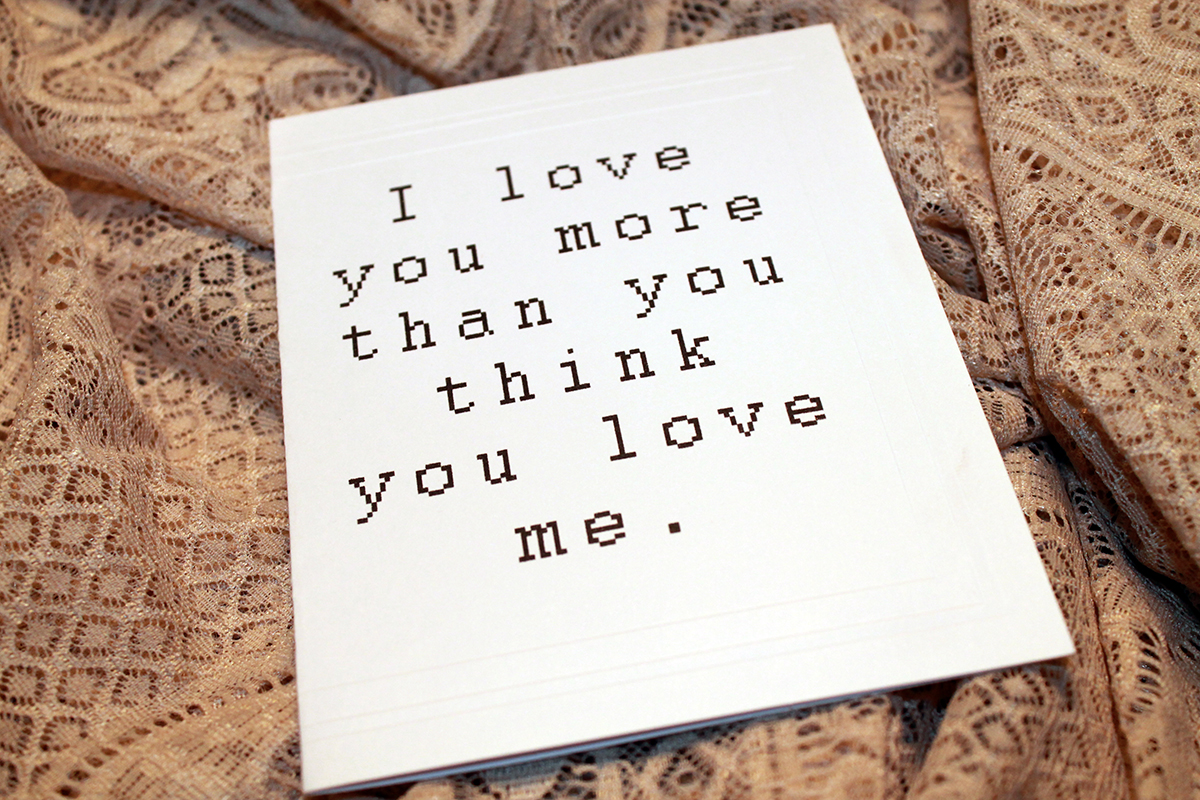 I love
you more
than you
think
you love
me.